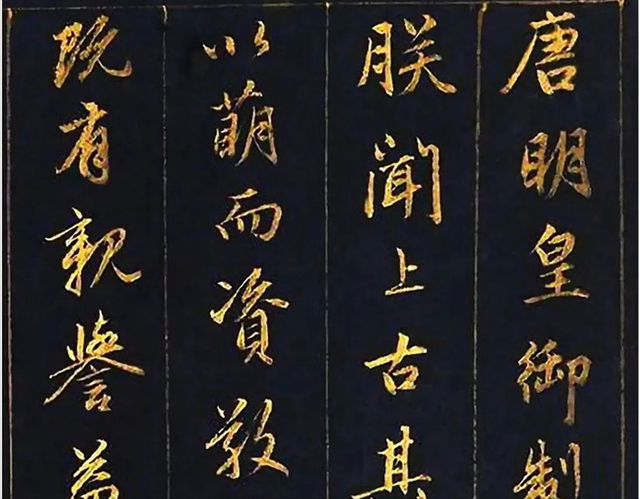 唐明皇御制
朕聞上古其
以萌而資敬
既有親譽益